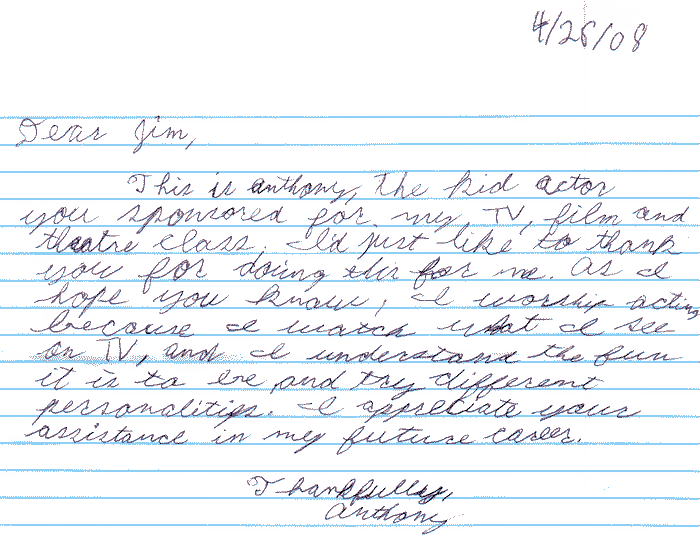 4/28/08
Dear Jim,
This is anthony, the kid actor
you sponsored for my TV, film and
theatre class. I'd just like to thank
you for doing this for me. As I
hope you know, I worship acting
because I watch what I see
on TV, and I understand the fun
it is to be and try different
personalities. I appreciate your
assistance in my future career.
Thankfully,
Anthony